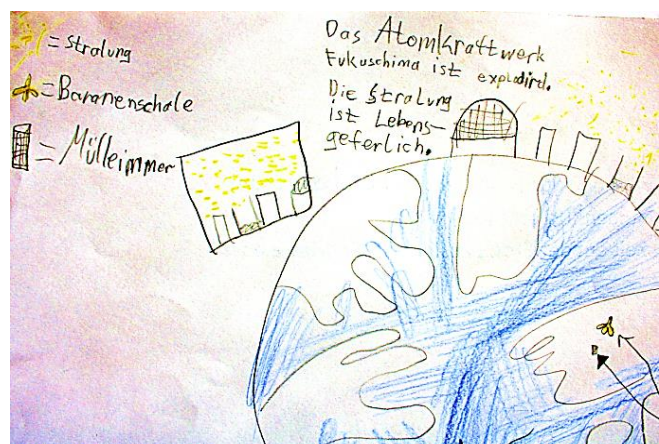 = Stralung
= Bananenschale
= Mülleimmer
Das Atomkraftwerk
Fukuschima ist explodird.
Die Stralung
ist Lebens-
geferlich.